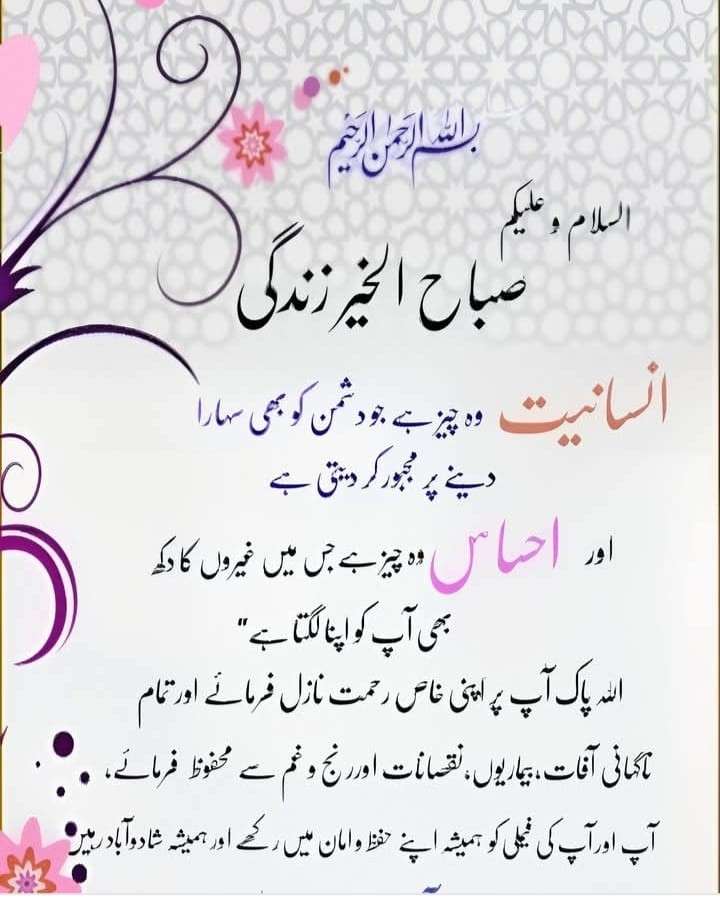 بسم الله الرحمن الرحیم
السلام و علیکم
صباح الخیر زندگی
انسانیت وہ چیز ہے جو دشمن کو بھی سہارا
دینے پر مجبور کر دیتی ہے
اور احساس وہ چیز ہے جس میں غیروں کا دکھ
بھی آپ کو اپنا لگتا ہے"
اللہ پاک آپ پر اپنی خاص رحمت نازل فرمائے اور تمام
ناگہانی آفات، بیماریوں، نقصانات اور رنج و غم سے محفوظ فرمائے،
آپ اور آپ کی فیملی کو ہمیشہ اپنے حفظ و امان میں رکھے اور ہمیشہ شاد و آباد رہیں